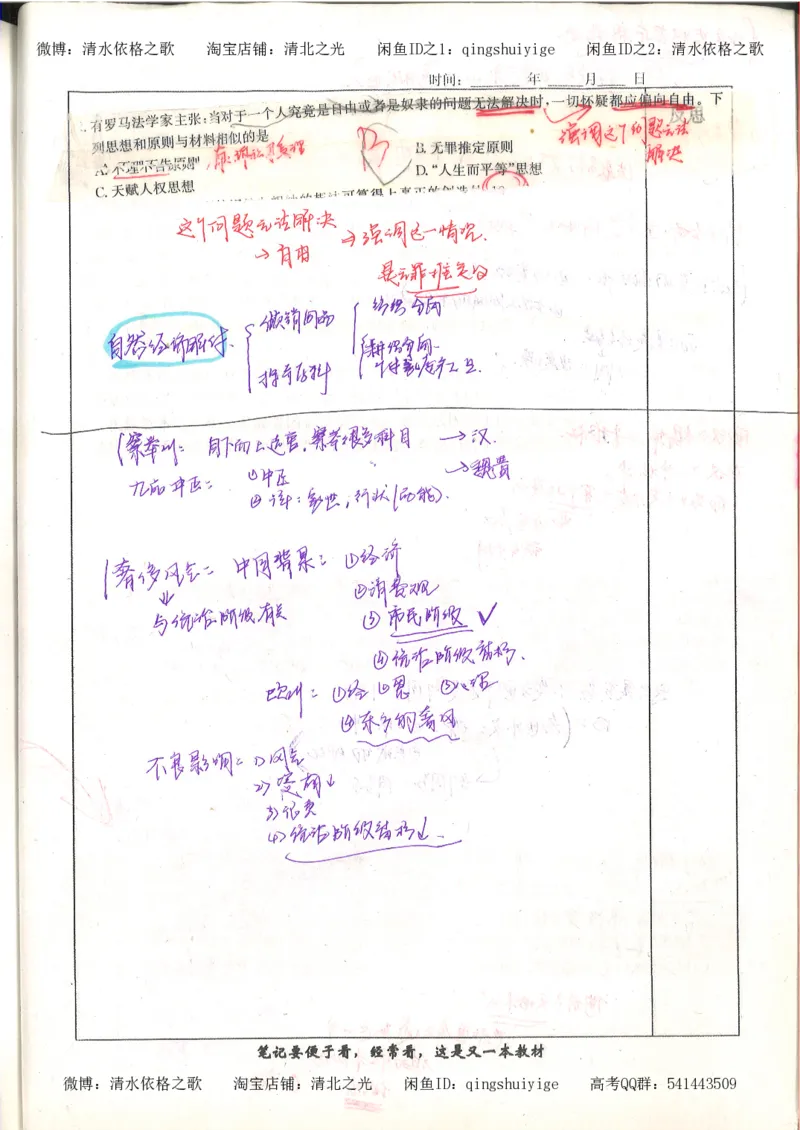 微博：清水依格之歌 淘宝店铺：清北之光 闲鱼ID之1：qingshuiyige 闲鱼ID之2：清水依格之歌
时间： 年 月 日
反思
有罗马法学家主张：当对于一个人究竟是自由或者是奴隶的问题无法解决时，一切怀疑都应偏向自由。下
列思想和原则与材料相似的是
B
强调这个问题无法
解决
A. 不理不告原则
B. 无罪推定原则
C. 天赋人权思想
D. “人生而平等”思想
这个问题无法解决
→自由
→强调这一情况.
是无罪推定的
自然经济解体
纺织分离
耕织分离
察举制：自下而上选官，察举很多科目 →汉.
九品中正： ①中正
→魏晋
奢侈风气： 中国背景： ①经济
②消费观
与统治阶级有关
③市民阶级 ✓
④统治阶级
欧洲： ①经 ②思
不良影响： 1)风气
2)
3)
4)统治阶级 ↓
笔记要便于看，经常看，这是又一本教材
微博：清水依格之歌 淘宝店铺：清北之光 闲鱼ID：qingshuiyige 高考QQ群：541443509